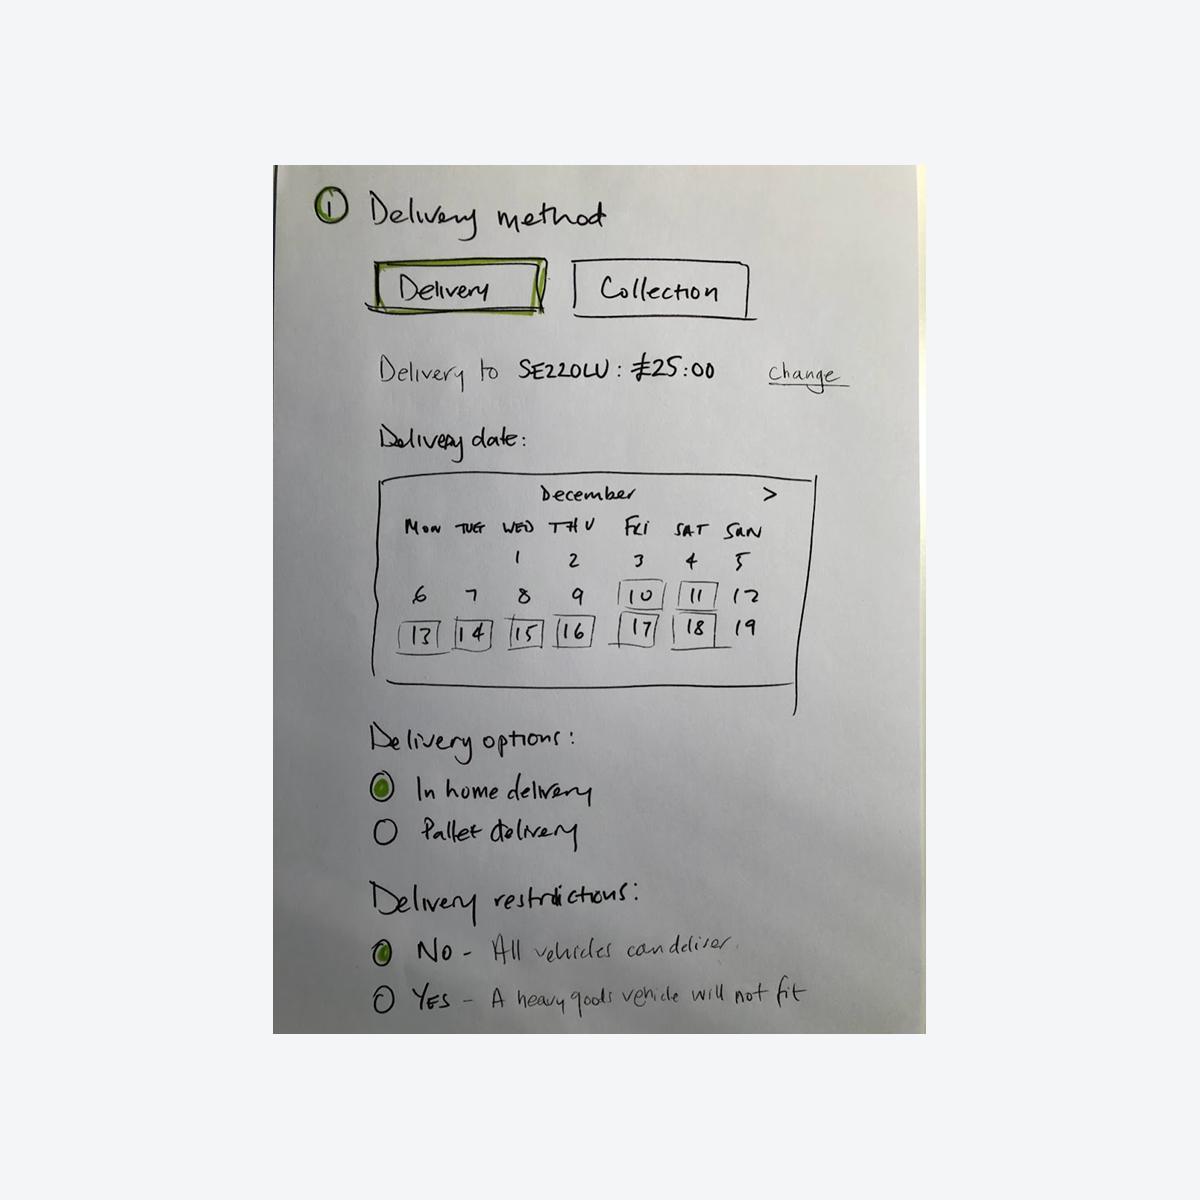 1 Delivery method
Delivery Collection
Delivery to SE220LU : £25:00 change
Delivery date:
December >
MON TUE WED THU FRI SAT SUN
1 2 3 4 5
6 7 8 9 10 11 12
13 14 15 16 17 18 19
Delivery options:
In home delivery
Pallet delivery
Delivery restrictions:
NO - All vehicles can deliver.
YES - A heavy goods vehicle will not fit